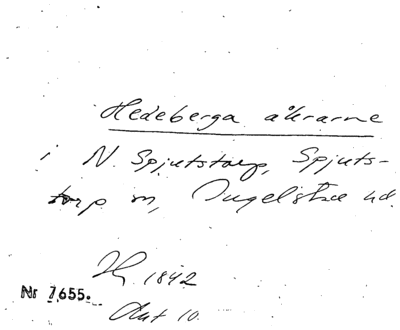 Hedeberga åkrarne
i N. Spjutstorp, Spjuts-
torp sn, Ingelstad hd.
1842
Nr 7655.
Akt 10.